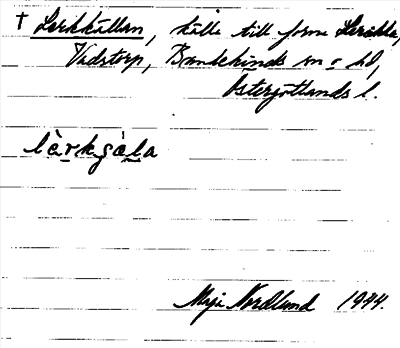 † Lerkkällan, källa till forna Lerkkla,
Vadstorp, Bankekinds sn o hd,
Östergötlands l.
lèrkçàla
Maja Nordlund 1944.